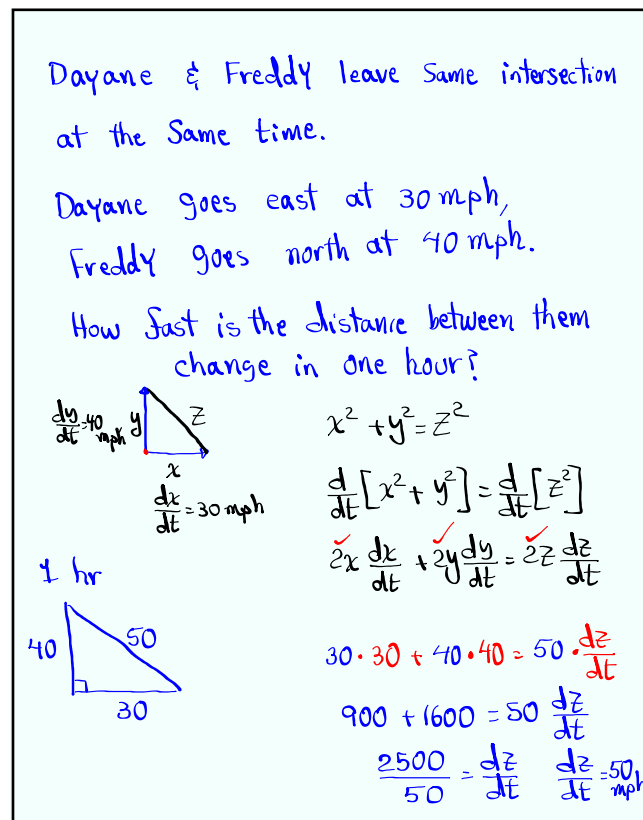 Dayane & Freddy leave same intersection
at the same time.
Dayane goes east at 30 mph,
Freddy goes north at 40 mph.
How fast is the distance between them
change in one hour?
dy/dt=40 mph y z
x
dx/dt=30 mph
x²+y²=z²
d/dt[x²+y²]=d/dt[z²]
2x dx/dt+2y dy/dt=2z dz/dt
1 hr
40 50
30
30·30+40·40=50·dz/dt
900+1600=50 dz/dt
2500/50=dz/dt dz/dt=50 mph